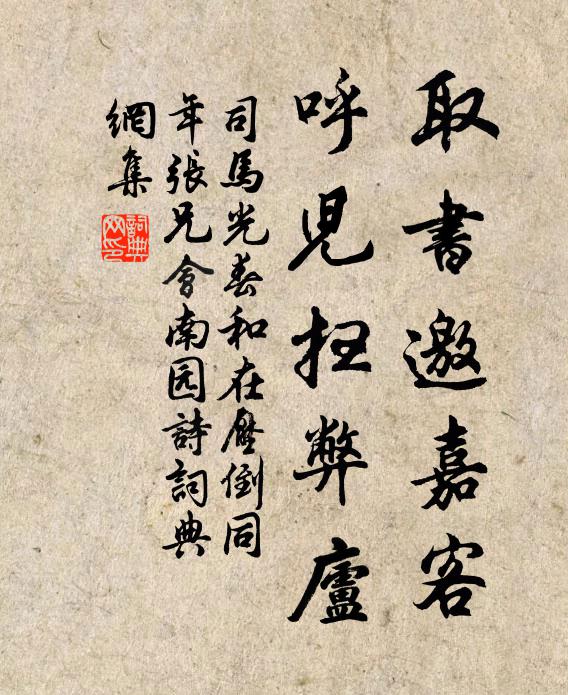 取書邀嘉客
呼兒扫弊廬
司馬光春和在倒同
年張兄會南园詩詞典
網集
詞典
网印